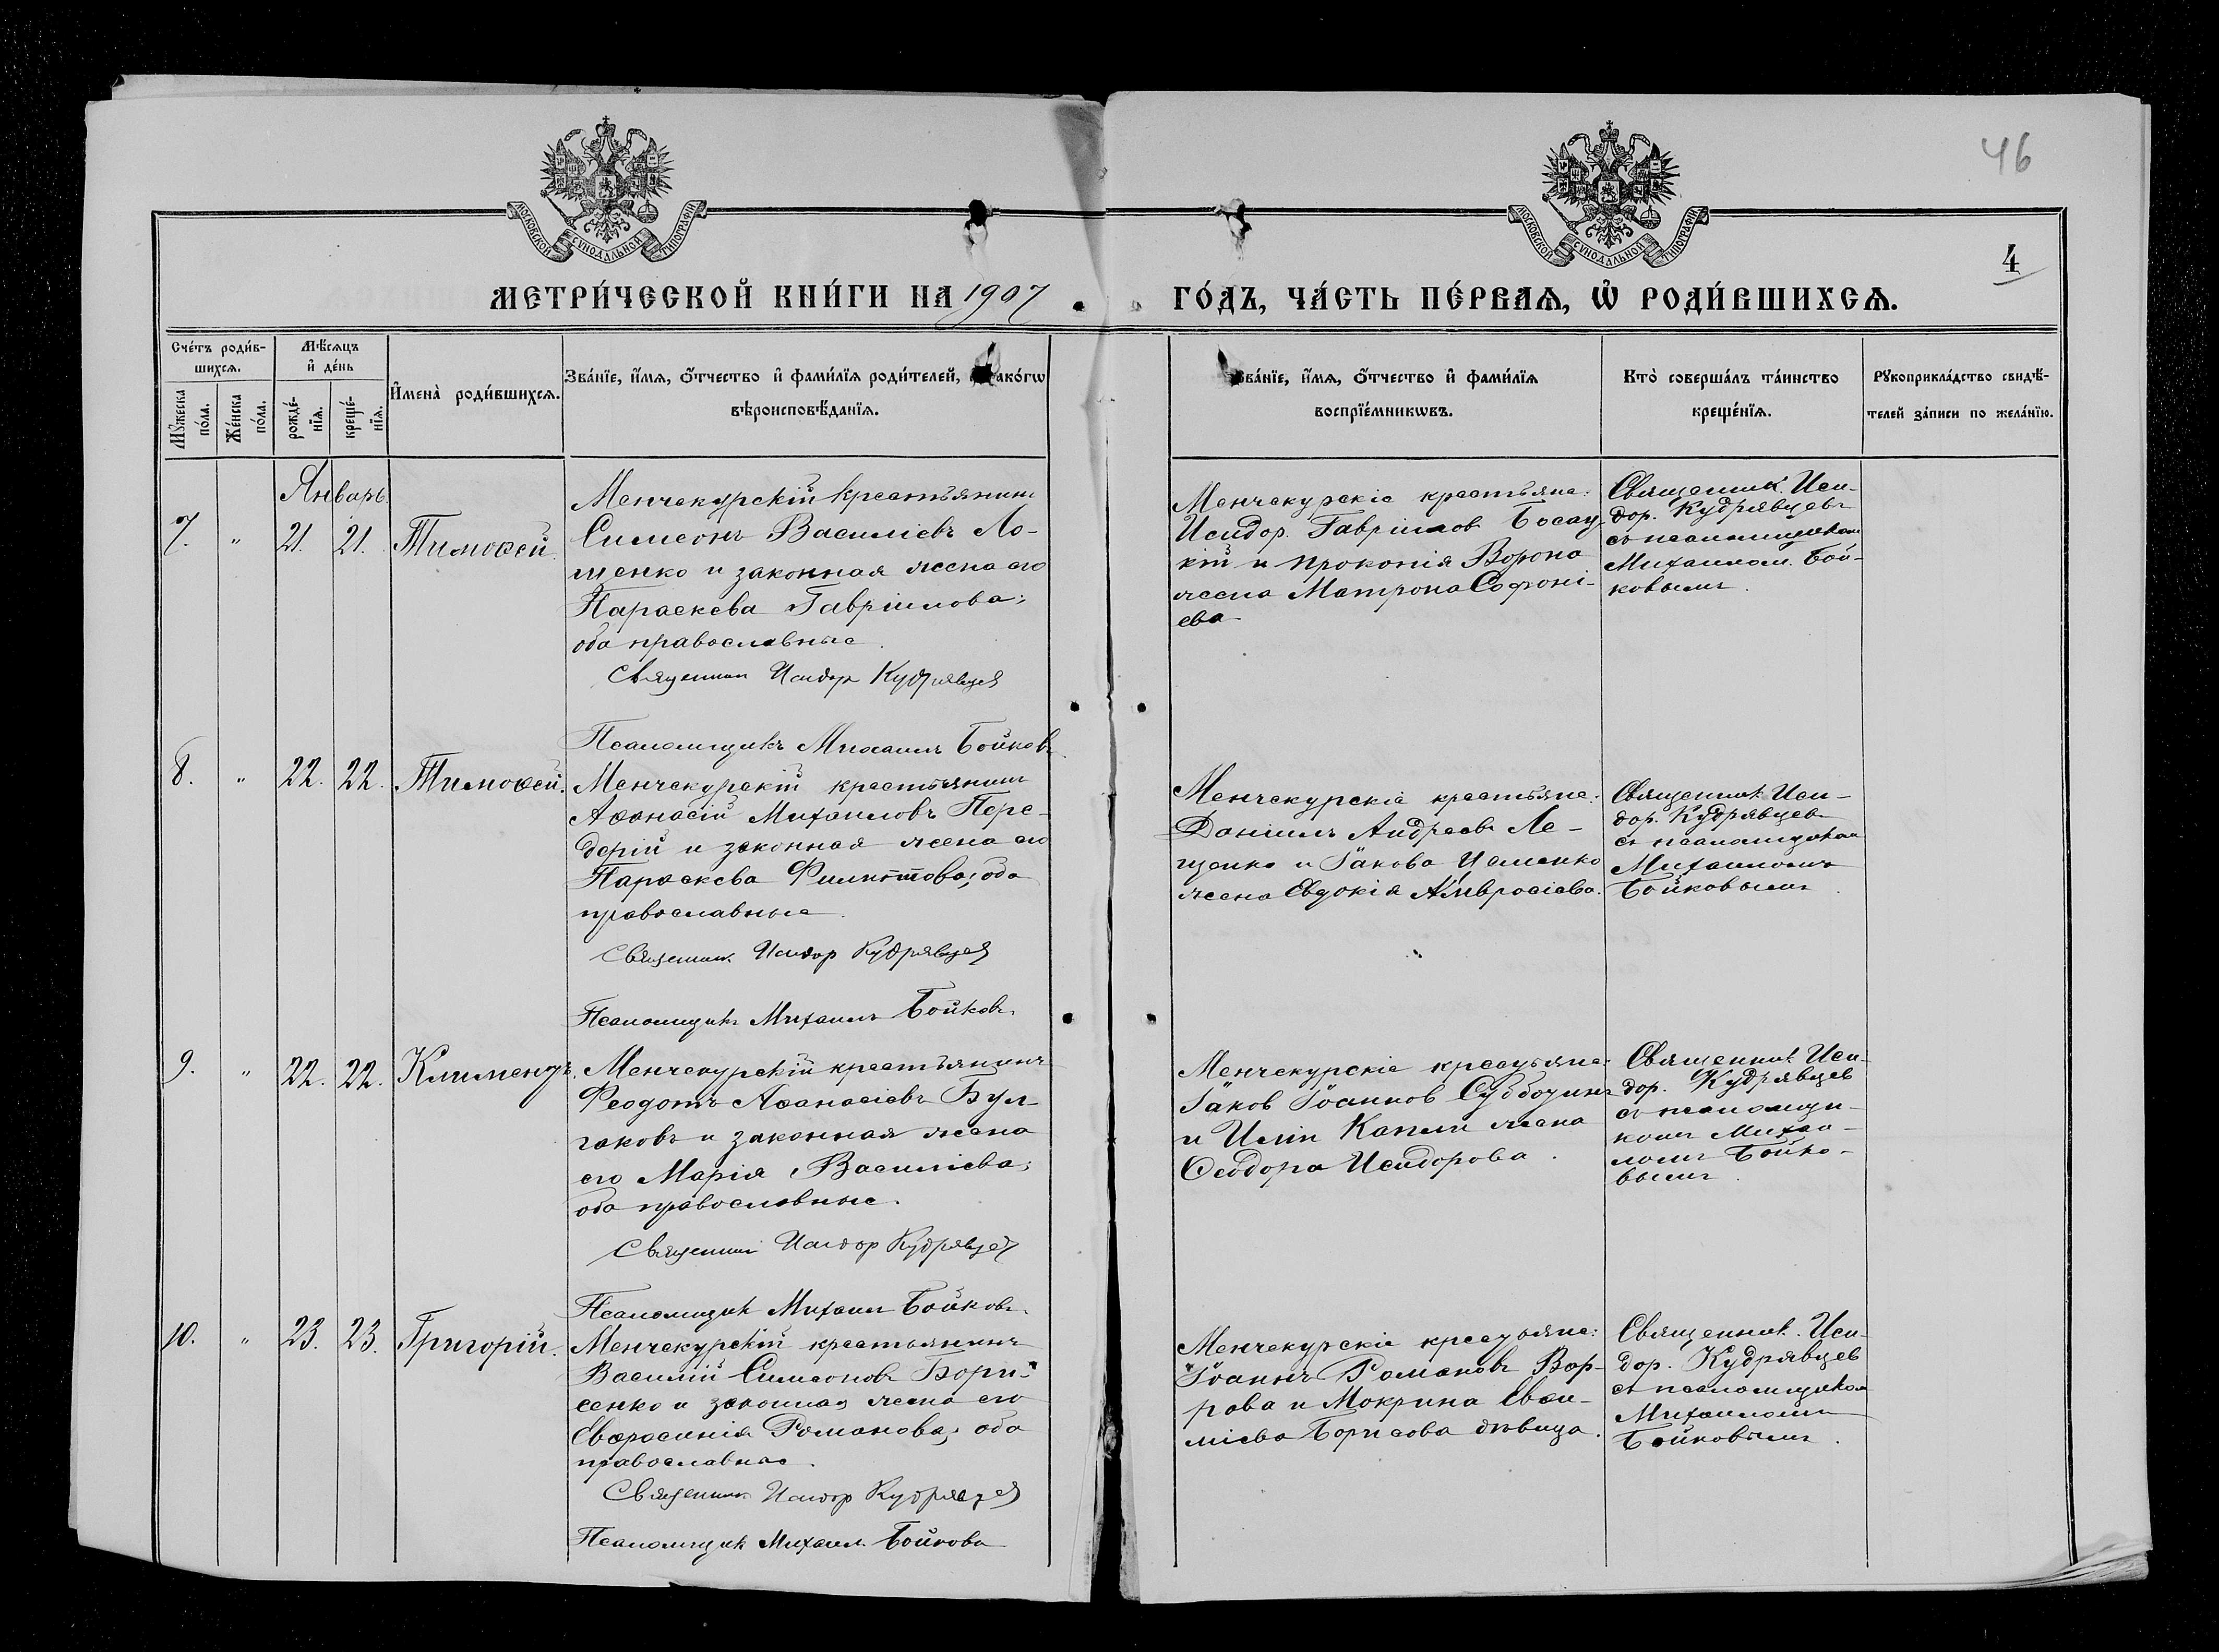 46
4
МОСКОВСКОЙ СѴНОДАЛЬНОЙ ТИПОГРАФІИ
МОСКОВСКОЙ СѴНОДАЛЬНОЙ ТИПОГРАФІИ
МЕТРИ́ЧЕСКОЙ КНИ́ГИ НА 1907 ГО́ДЪ, ЧА́СТЬ ПЕ́РВАѦ, Ѡ҆ РОДИ́ВШИХСѦ.
Сче́тъ роди́в-
шихсѧ.
Мꙋ́жеска по́ла.
Же́нска по́ла.
Мѣ́сѧцъ
и҆ де́нь
рожде́-
нїѧ.
креще́-
нїѧ.
И҆мена̀ роди́вшихсѧ.
Зва́нїе, и҆́мѧ, ѻ҆́тчество и҆ фами́лїѧ роди́телей, ако́гѡ
вѣроисповѣ́данїѧ.
ва́нїе, и҆́мѧ, ѻ҆́тчество и҆ фами́лїѧ
воспрїе́мникѡвъ.
Кто̀ соверша́лъ та́инство
креще́нїѧ.
Рꙋкоприкла́дство свидѣ́-
телей за́писи по жела́нїю.
Январь
7. " 21. 21. Тимоѳей.
Менчекурскій крестьянинъ
Симеонъ Василіевъ Ло-
щенко и законная жена его
Параскева Гавріилова;
оба православные.
Священник Исидор Кудрявцев
Псаломщикъ Михаилъ Бойковъ
Менчекурскіе крестьяне:
Исидор. Гавріилов Босау
кій и Прокопія Ворона
жена Матрона Софоні-
ева
Священник. Иси-
дор. Кудрявцевъ
съ псаломщиком
Михаилом. Бой-
ковымъ.
8. " 22. 22. Тимоѳей.
Менчекурскій крестьянин
Аѳанасій Михаиловъ Пере-
дерій и законная жена его
Параскева Филиппова; оба
православные.
Священник Исидор Кудрявцев
Псаломщикъ Михаилъ Бойковъ.
Менчекурскіе крестьяне:
Даніилъ Андреевъ Ле-
щенко и Іакова Усменко
жена Евдокія Амвросіева.
Священник. Иси-
дор. Кудрявцевъ
съ псаломщиком
Михаиломъ
Бойковымъ.
9. " 22. 22. Климентъ.
Менчекурскій крестьянинъ
Феодотъ Аѳанасіевъ Бул-
гаковъ и законная жена
его Марія Василіева;
оба православные.
Священник Исидор Кудрявцев
Псаломщик Михаил Бойковъ.
Менчекурскіе крестьяне:
Іаков Іоаннов Субботинъ
и Иліи Капли жена
Ѳеодора Исидорова.
Священник. Иси-
дор. Кудрявцев
съ псаломщи-
комъ Михаи-
ломъ Бойко-
вымъ.
10. " 23. 23. Григорій.
Менчекурскій крестьянинъ
Василій Симеоновъ Бори-
сенко и законная жена его
Евфросинія Романова; оба
православные.
Священник Исидор Кудрявцев
Псаломщик Михаил Бойковъ
Менчекурскіе крестьяне:
Іоаннъ Романовъ Вор-
рова и Мокрина Евѳи-
міева Борисова дѣвица.
Священник. Иси-
дор. Кудрявцев
съ псаломщиком
Михаиломъ
Бойковымъ.